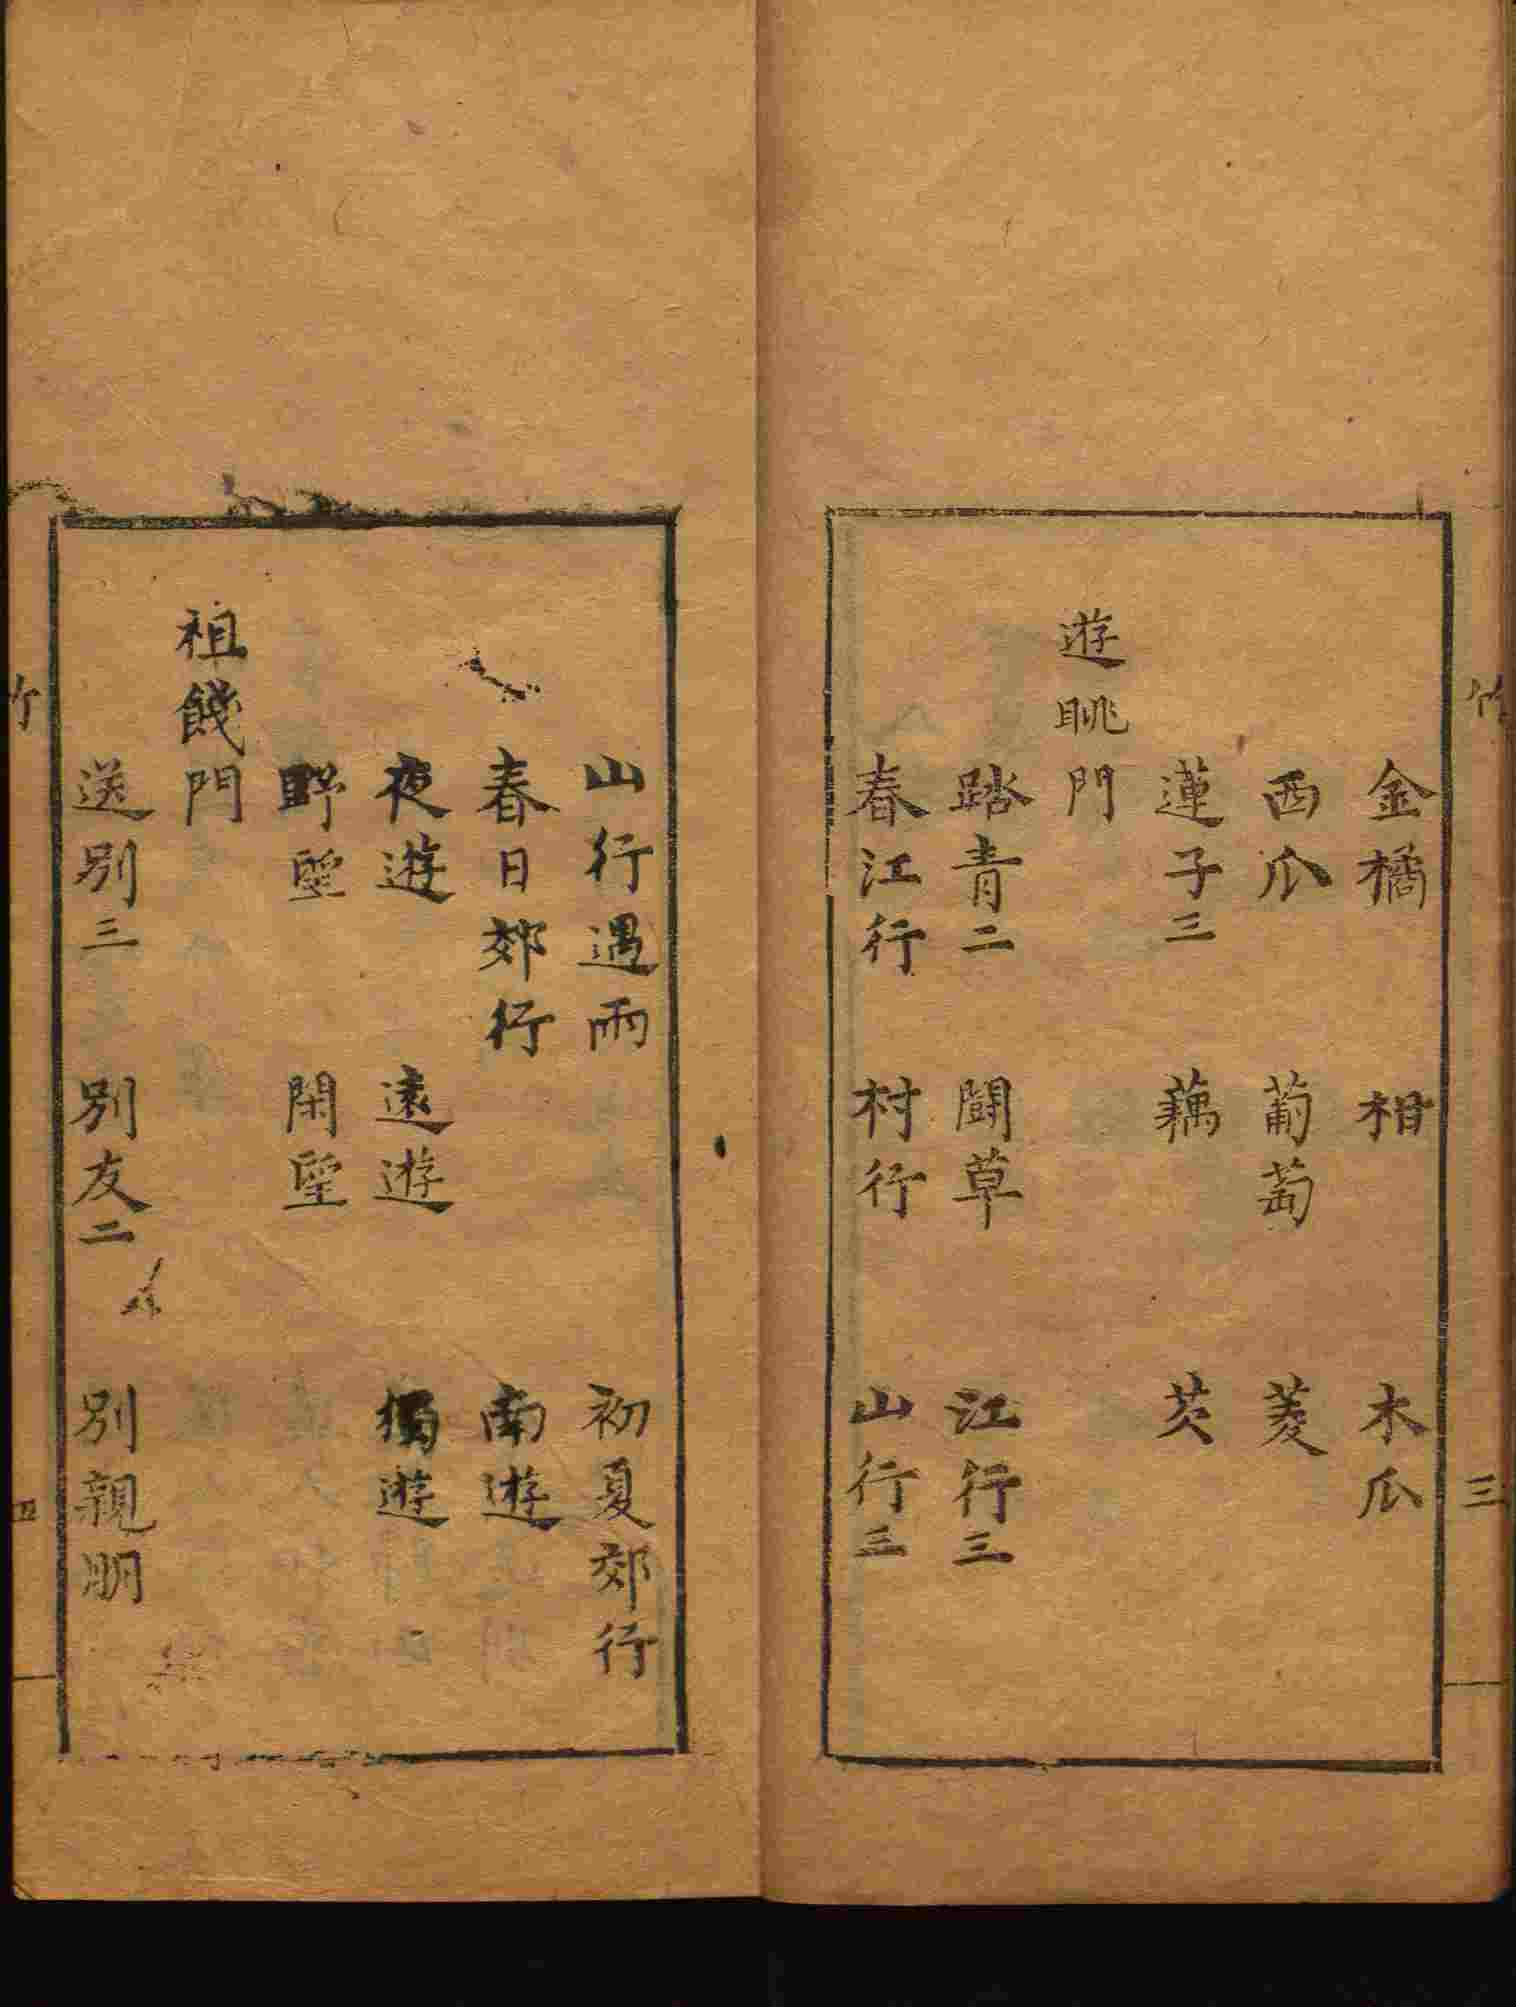 金橘 柑 木瓜
西瓜 葡萄 菱
蓮子三 藕 芡
遊眺門
踏青二 鬪草 江行三
春江行 村行 山行三
竹 三
山行遇雨 初夏郊行
春日郊行 南遊
夜遊 遠遊 獨遊
野望 閑望
祖餞門
送别三 别友二 别親朋
竹 四